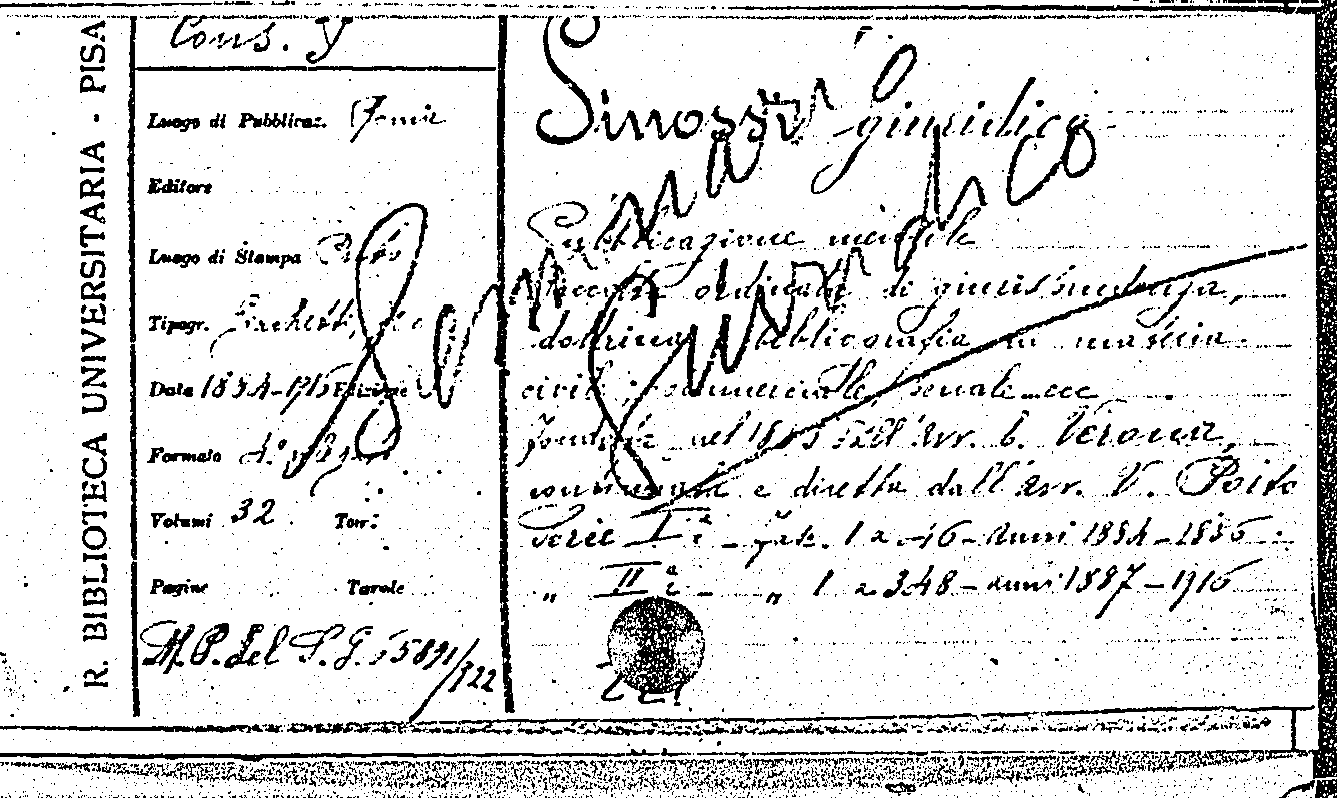 R. BIBLIOTECA UNIVERSITARIA - PISA
Cons. y
Luogo di Pubblicaz. Roma
Editore
Luogo di Stampa
Tipogr.
Data 1884-1916 Edizione
Formato 4.°
Volumi 32 Tom:
Pagine Tavole
M. P. del S. G. 15891/922
Sinossi giuridica
Seminario Giuridico
Pubblicazione mensile
Raccolta ordinata di giurisprudenza,
dottrina, bibliografia in materia
civile, commerciale, penale ecc
fondata nel dall'avv. C. Verona,
continuata e diretta dall'avv. V. Porto
Serie Iª - fasc. 1 a 46 - anni 1884-1886
„ IIª - „ 1 a 348 - anni 1887-1916